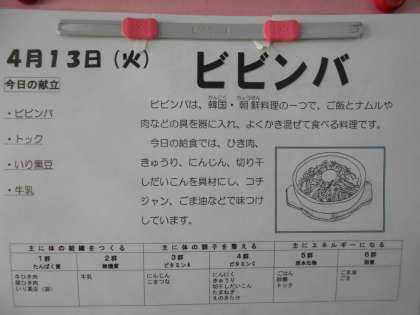 4月13日（火）
ビビンバ
今日の献立
・ビビンバ
・トック
・いり黒豆
・牛乳
ビビンバは、韓国・朝鮮料理の一つで、ご飯とナムルや
肉などの具を器に入れ、よくかき混ぜて食べる料理です。
今日の給食では、ひき肉、
きゅうり、にんじん、切り干
しだいこんを具材にし、コチ
ジャン、ごま油などで味つけ
しています。
主に体の組織をつくる 主に体の調子を整える 主にエネルギーになる
1群 2群 3群 4群 5群 6群
たんぱく質 無機質 ビタミンA ビタミンC 炭水化物 脂質
牛ひき肉 牛乳 にんじん にんにく ごはん ごま油
豚ひき肉 こまつな きゅうり 砂糖 ごま
いり黒豆 切干しだいこん トック
たまねぎ
えのきたけ